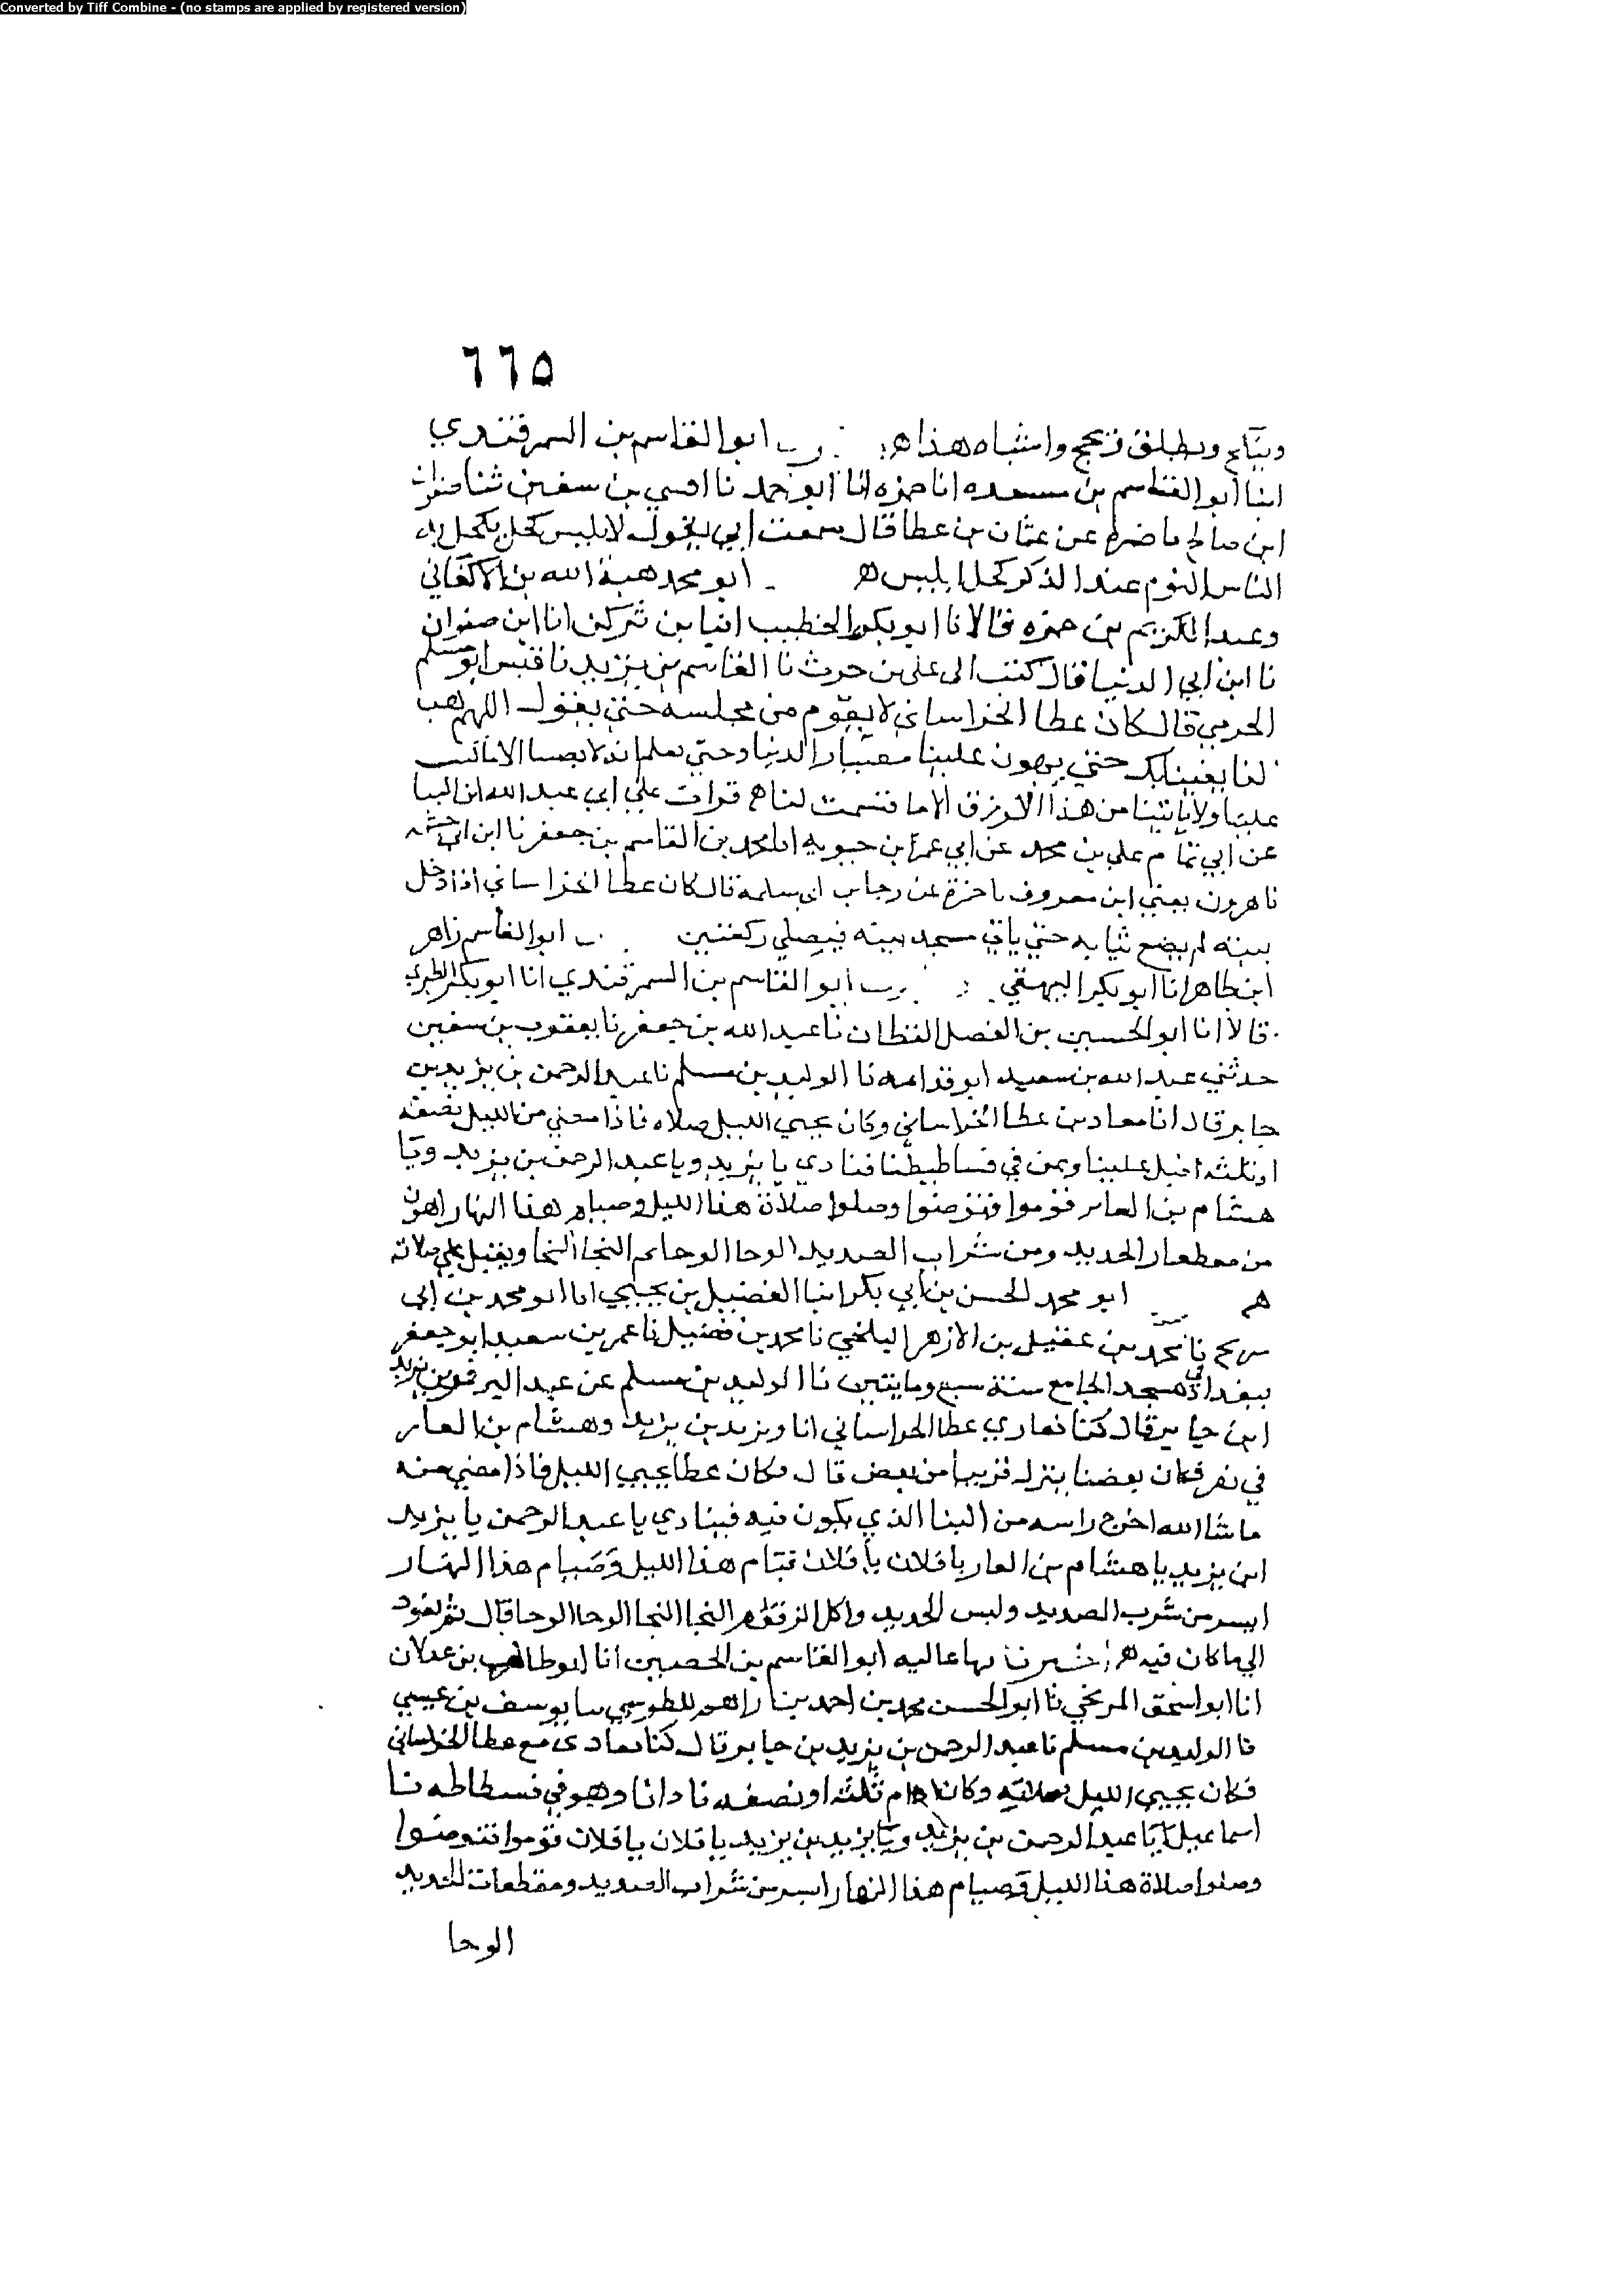 Converted by Tiff Combine - (no stamps are applied by registered version)
٦٦٥
وتطلق وتحج واشباه هذا هـ ابو القاسم بن السمرقندي
ابنا ابو القاسم بن مسعده انا حمزه انا ابو احمد نا بن سفين ثنا صفوان
ابن صالح نا ضمره عن عثمان بن عطا قال سمعت ابي يقول لابليس كحل يكحل به
الناس النوم عند الذكر كحل ابليس هـ ابو محمد هبة الله بن الاكفاني
وعبد الكريم بن حمزه قالا نا ابو بكر الخطيب انبا بن انا ابن صفوان
نا ابن ابي الدنيا قال كتب الى علي بن حرث نا القاسم بن يزيد نا ابو مسلم
الحرمي قال كان عطا الخراساني لا يقوم من مجلسه حتى يقول اللهم هب
لنا يقينا بك حتى يهون علينا الدنيا وحتى نعلم انه لا يصيبنا الا ما كتب
علينا ولا ياتينا من هذا الرزق الا ما قسمت لنا هـ قرات علي ابي عبد الله ابن البنا
عن ابي تمام علي بن محمد عن ابي عمر بن حيويه انا محمد بن القاسم بن جعفر نا ابن ابي خيثمه
نا هرون يعني ابن معروف نا ضمرة عن رجا بن ابي سلمة قال كان عطا الخراساني اذا دخل
بيته لم يضع ثيابه حتى ياتي مسجد بيته فيصلي ركعتين ابو القاسم زاهر
ابن طاهر انا ابو بكر البيهقي ابو القاسم بن السمرقندي انا ابو بكر الطبري
قالا انا ابو الحسين بن الفضل القطان نا عبد الله بن جعفر نا يعقوب بن سفين
حدثني عبد الله بن سعيد ابو قدامه نا الوليد بن مسلم نا عبد الرحمن بن يزيد بن
جابر قال عطا الخراساني وكان يحيي الليل صلاه فاذا مضى من الليل نصفه
او ثلثه اقبل علينا ونحن في فساطيطنا فنادي يا يزيد ويا عبد الرحمن بن يزيد ويا
هشام بن الغار قوموا فتوضوا وصلوا صلاة هذا الليل وصيام هذا النهار اهون
من الحديد ومن شراب الصديد الوحا الوحا ثم النجا النجا ويقبل على صلاته
هـ ابو محمد الحسن بن ابي بكر انبا الفضيل بن يحيى انا ابو محمد بن ابي
سريح نا محمد بن عقيل بن الازهر البلخي نا محمد بن فضيل نا عمر بن سعيد ابو جعفر
ببغداد في مسجد الجامع سنة سبع ومايتين نا الوليد بن مسلم عن عبد الرحمن بن يزيد
ابن جابر قال كنا عطا الخراساني انا ويزيد بن يزيد وهشام بن الغار
في نفر فكان بعضنا ينزل قريبا من بعض قال وكان عطا يحيي الليل فاذا مضى منه
ما شا الله اخرج راسه من البنا الذي يكون فيه فينادي يا عبد الرحمن يا يزيد
ابن يزيد يا هشام بن الغار يا فلان يا فلان قيام هذا الليل وصيام هذا النهار
ايسر من شرب الصديد ولبس الحديد واكل الزقوم النجا النجا الوحا الوحا قال ثم يعود
الى ما كان فيه هـ اخبرنا بها عاليه ابو القاسم بن الحصين انا ابو طالب بن غيلان
انا ابو اسحق المزكي نا ابو الحسن محمد بن احمد بن زاهر الطوسي نا يوسف بن عيسى
نا الوليد بن مسلم نا عبد الرحمن بن يزيد بن جابر قال كنا مع عطا الخراساني
فكان يحيي الليل وكان ثلثه او نصفه نادانا وهو في فسطاطه نا
اسماعيل يا عبد الرحمن بن يزيد ويا يزيد بن يزيد يا فلان يا فلان قوموا فتوضوا
وصلوا صلاة هذا الليل وصيام هذا النهار ايسر من شراب الصديد ومقطعات الحديد
الوحا